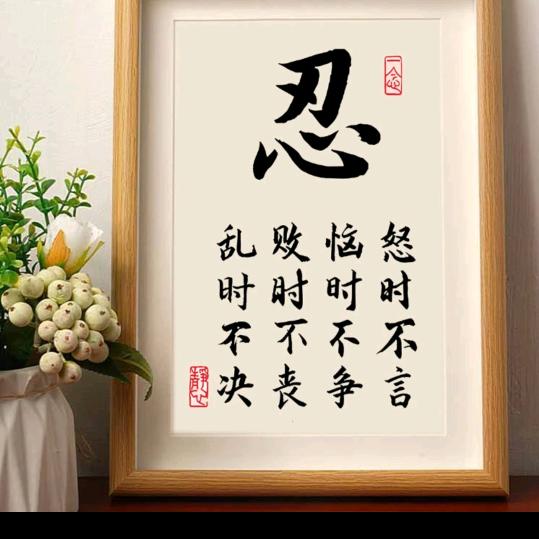 忍
一念
怒时不言
恼时不争
败时不丧
乱时不决
静心